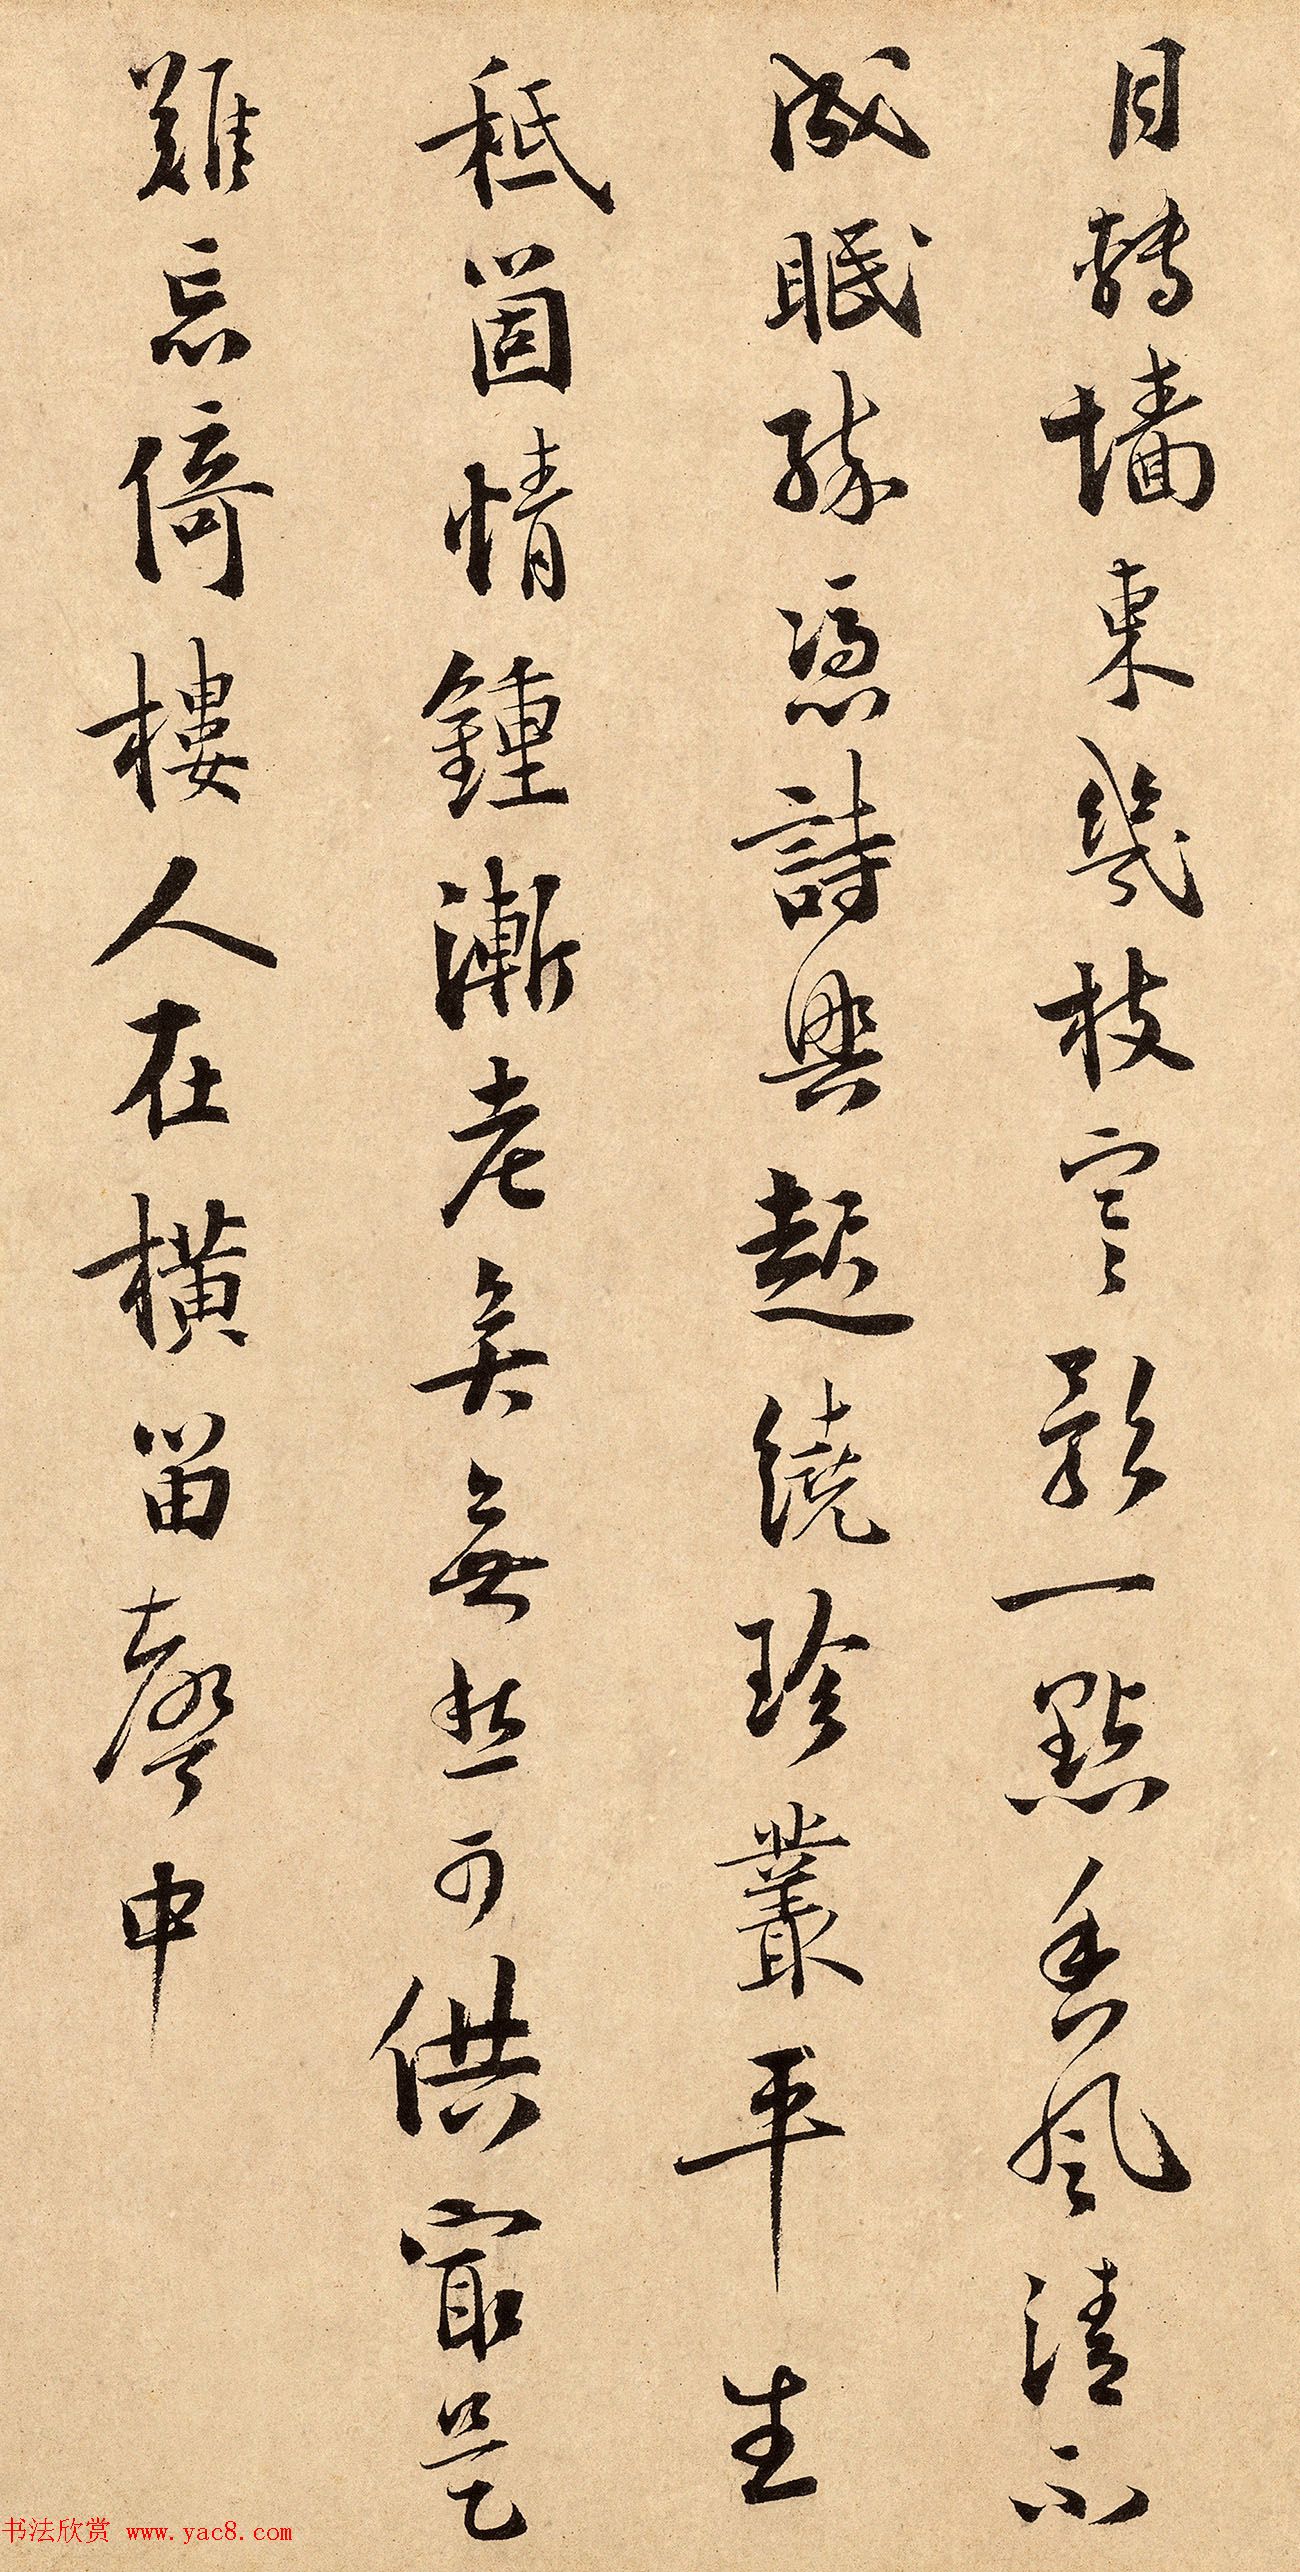 月轉墻東幾枝寒影一點香風清不
成眠醉憑詩興起繞珍叢平生
秪箇情鍾漸老矣無愁可供最是
難忘倚樓人在橫笛聲中
书法欣赏 www.yac8.com